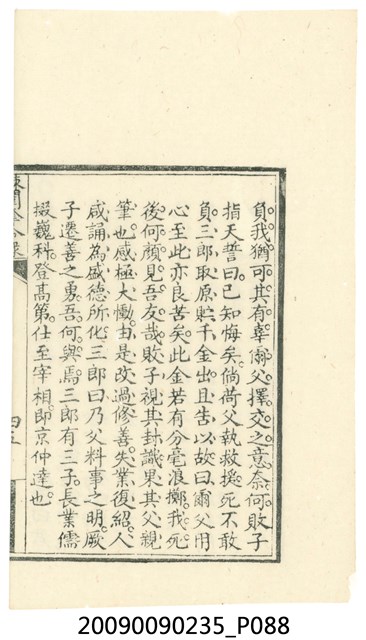 負我猶可其有辜爾父擇交之意奈何敗子
指天誓曰已知悔矣倘荷父執救援死不敢
負三郎取原貯千金出且告以故曰爾父用
心至此亦良苦矣此金若有分毫浪擲我死
後何顏見吾友哉敗子視其封識果其父親
筆也感極大慟由是改過修善失業復紹人
咸誦為盛德所化三郎曰乃父料事之明厥
子遷善之勇吾何與焉三郎有三子長業儒
掇巍科登高第仕至宰相即京仲達也
四五
20090090235_P088